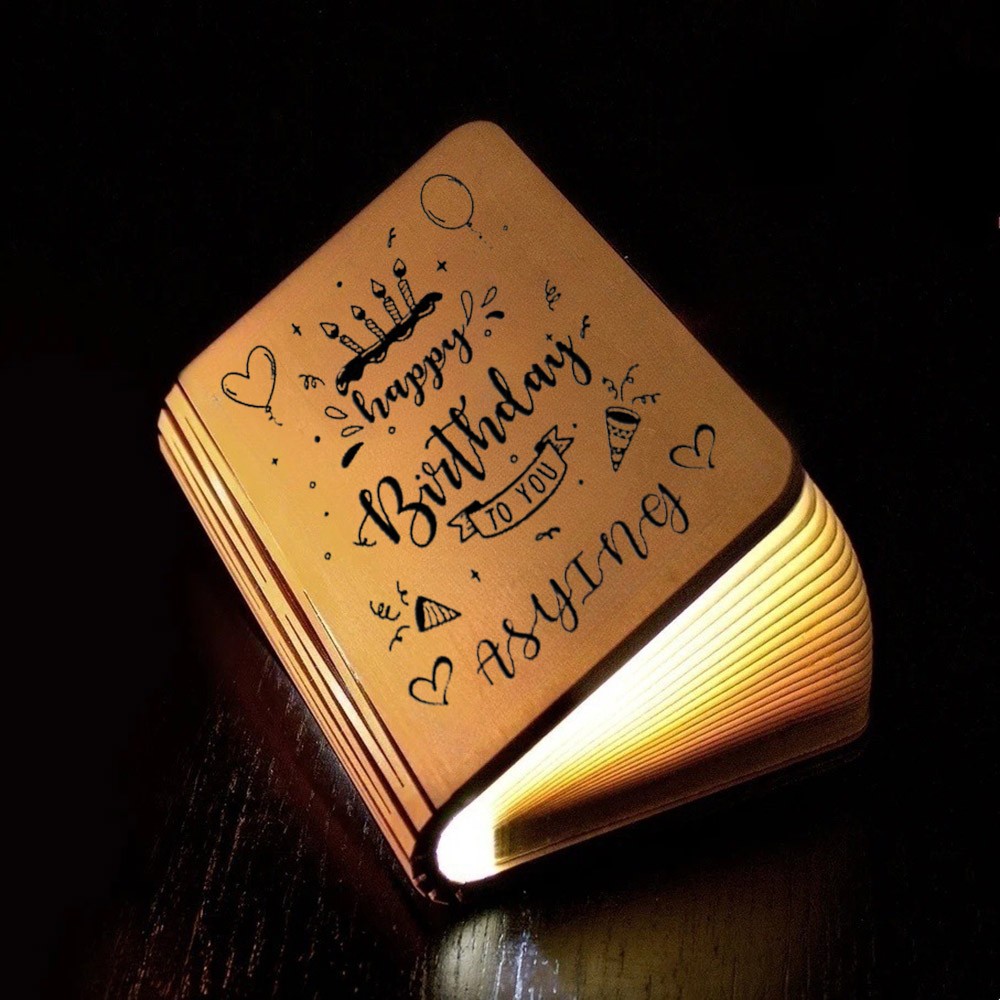 happy
Birthday
TO YOU
ASYING